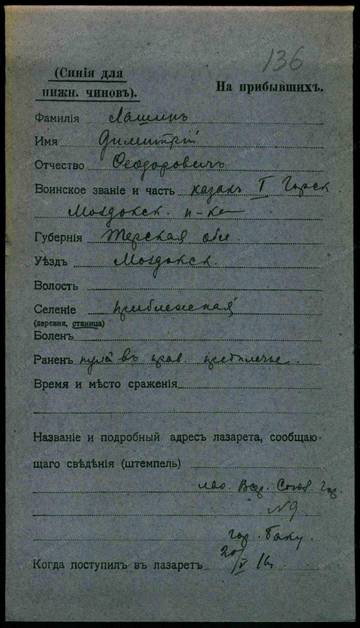 136
(Синія для
нижн. чиновъ).
На прибывшихъ.
Фамилія Лашинъ
Имя Димитрій
Отчество Ѳеодоровичъ
Воинское званіе и часть казакъ I Горск.
Моздокск. п-ка
Губернія Терская обл.
Уѣздъ Моздокск.
Волость
Селеніе Приближная
(деревня, станица)
Боленъ
Раненъ пулей въ прав. предплечье.
Время и мѣсто сраженія
Названіе и подробный адресъ лазарета, сообщаю-
щаго свѣдѣнія (штемпель)
лаз. Союза Гор.
№9
гор. Баку
Когда поступилъ въ лазаретъ 20/V 16